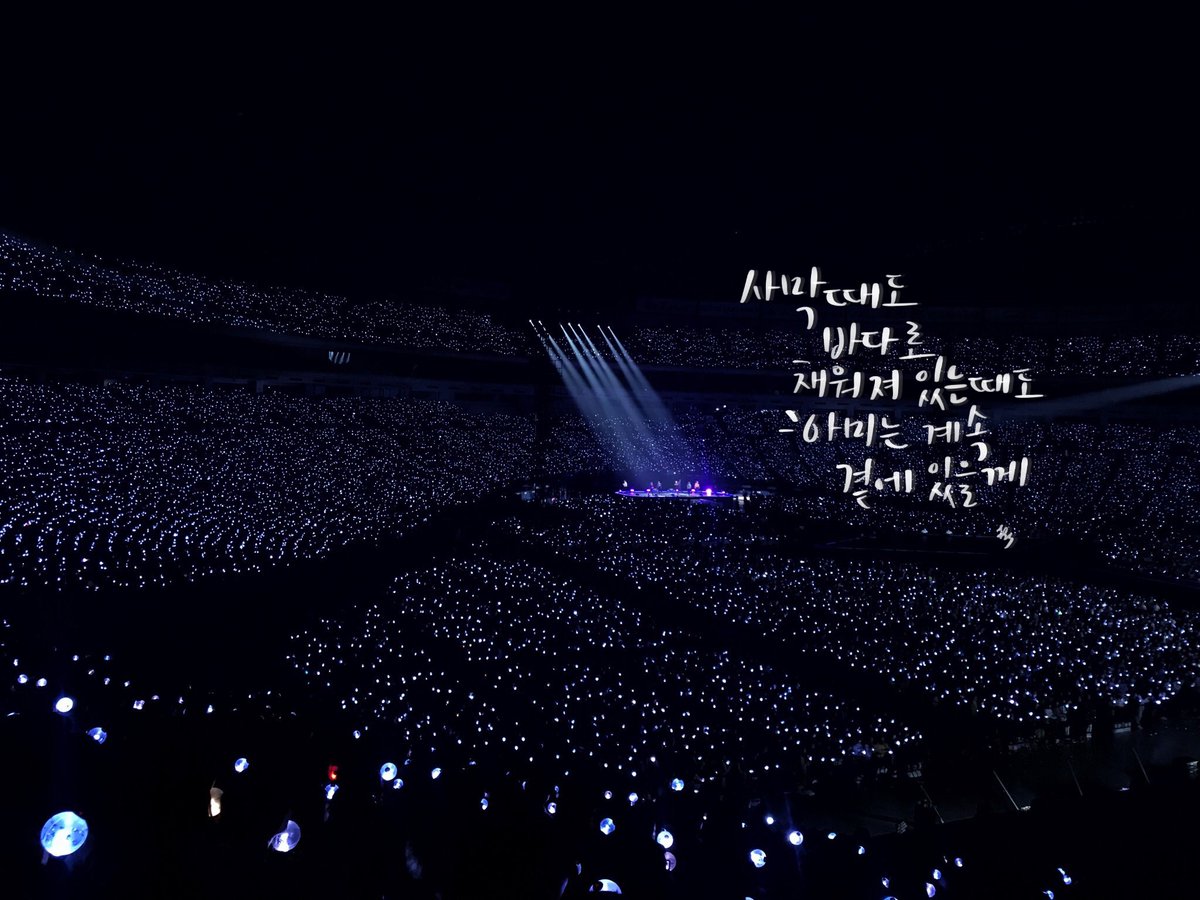 사막때도
바다로
채워져 있는때도
아미는 계속
곁에 있을께